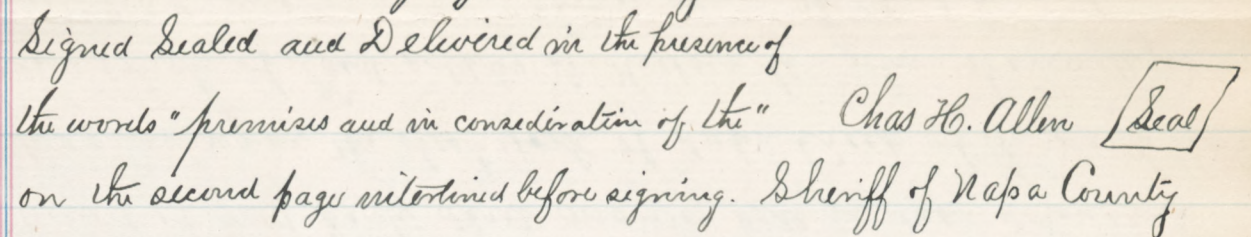 Signed Sealed and Delivered in the presence of
the words "premises and in consideration of the" Chas H. Allen Seal
on the second page interlined before signing. Sheriff of Napa County